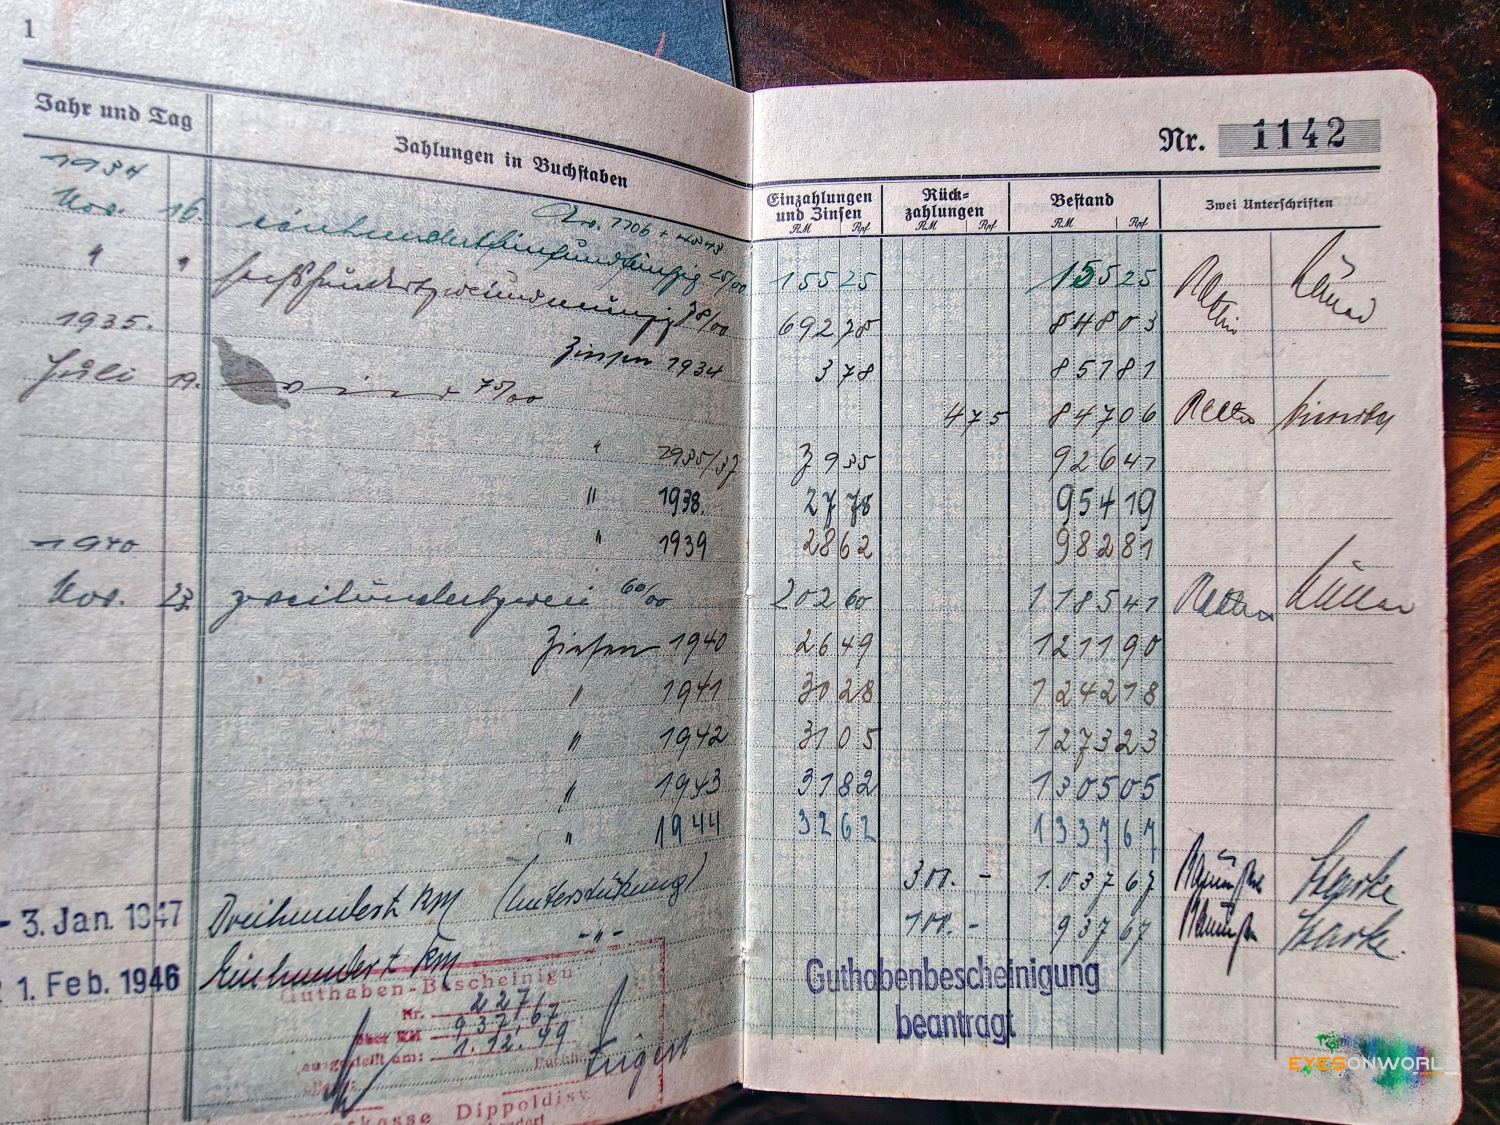 1
Jahr und Tag
Zahlungen in Buchstaben
Nr. 1142
Einzahlungen und Zinsen
RM Rpf
Rück-zahlungen
RM Rpf
Bestand
RM Rpf
Zwei Unterschriften
1934
Nov. 16. einhundertfünfundfünfzig 25/00 155 25 155 25
" " sechshundertzweiundneunzig 78/00 692 78 848 03
1935.
Zinsen 1934 3 78 851 81
Juli 19. 75/00 4 75 847 06
" 1935/37 926 41
" 1938. 27 78 954 19
" 1939 28 62 982 81
1940
Nov. 23. zweihundertzwei 60/00 202 60 1185 41
Zinsen 1940 26 49 1211 90
" 1941 31 28 1242 18
" 1942 31 05 1273 23
" 1943 31 82 1305 05
" 1944 32 62 1337 67
- 3. Jan. 1947 Dreihundert RM (Unterstützung) 300. - 1.037 67 Starke
1. Feb. 1946 Einhundert RM -"- 100. - 937 67 Starke.
Guthaben-Bescheinigu
Nr. 22767
über RM 937,67
ausgestellt am: 1.12.49
kasse Dippoldisw
Guthabenbescheinigung
beantragt
EYESONWORLD